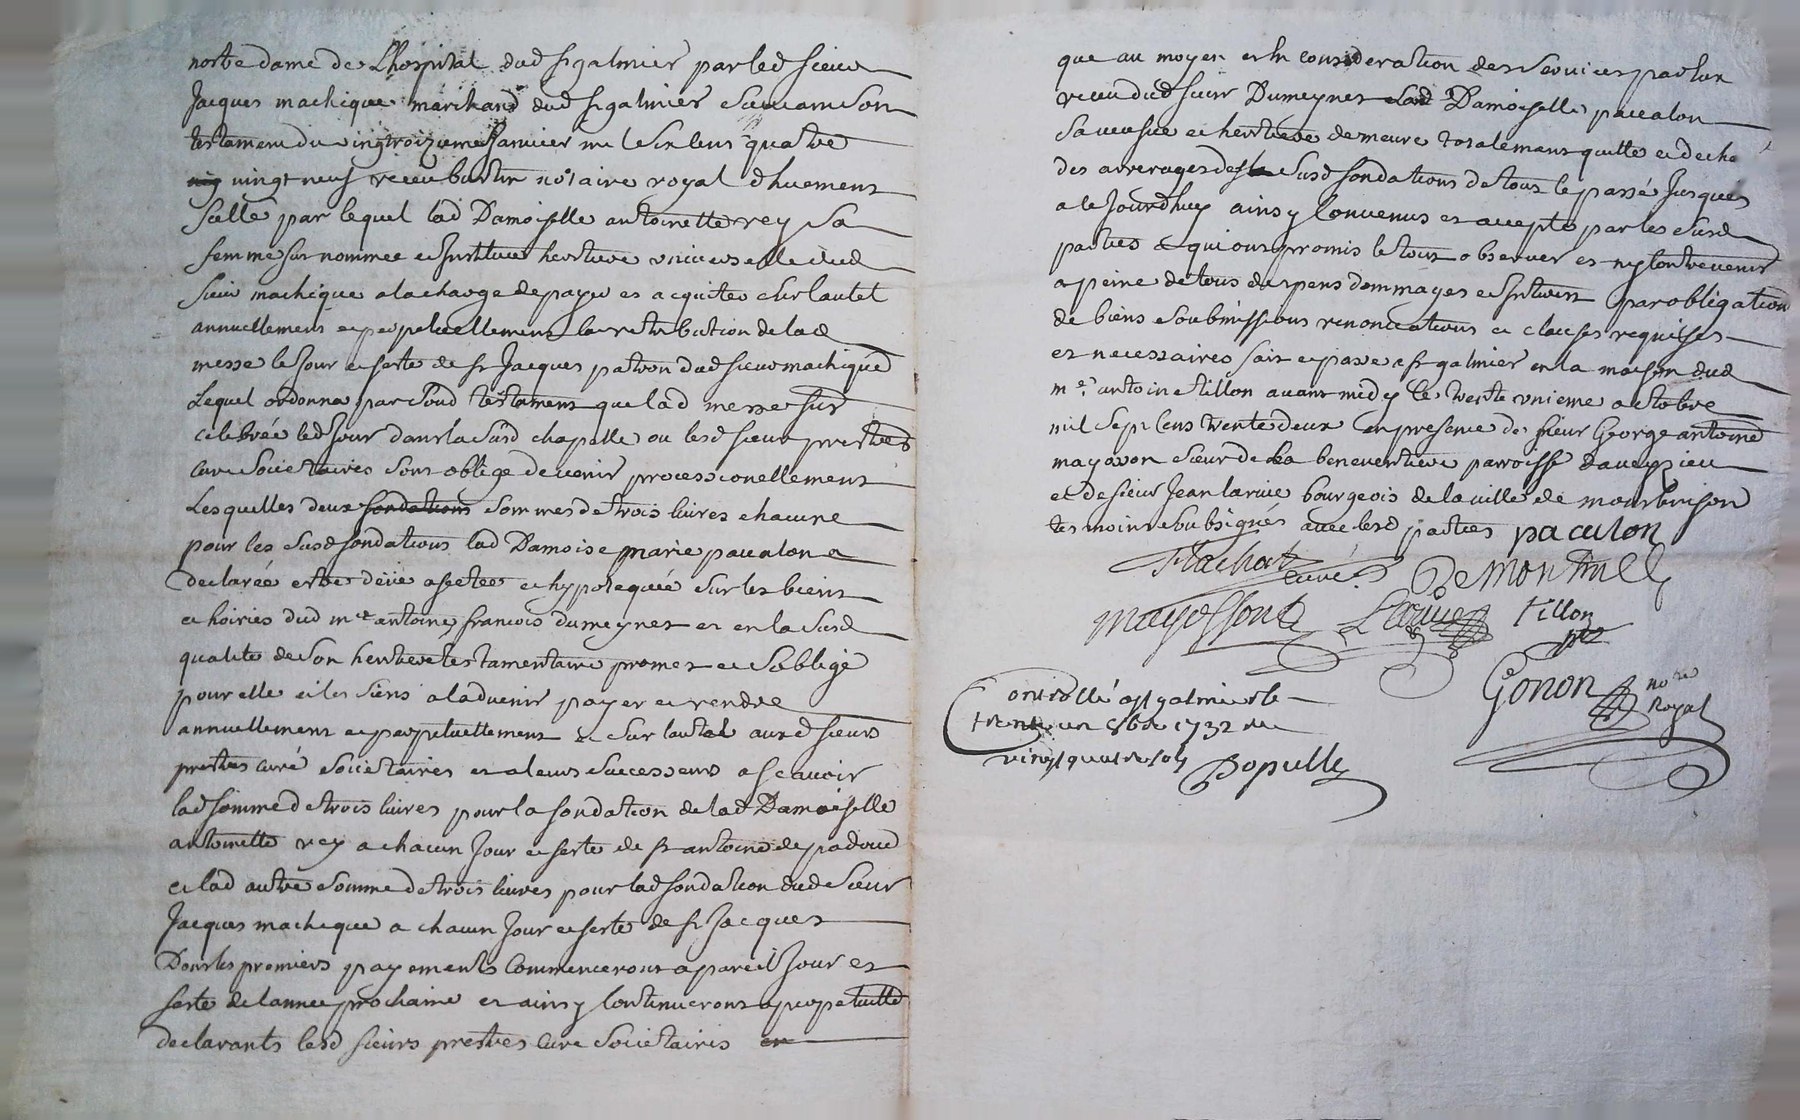 nostre dame de Lhospital dud st galmier par led sieur
Jacques machique marchand dud st galmier suivant son
testament du vingtroizieme Janvier mil six cens quatre
vingt neuf receu burtin notaire royal dhuement
scellé par lequel lad Damoiselle antoinette rey sa
femme fut nommee et instituee heritiere universelle dud
sieur machique a la charge de payer et acquiter sur lautel
annuellement et perpetuellement la retribution de lad
messe le Jour et feste de st Jacques patron dud sieur machique
Lequel ordonne par sond testament que lad messe fut
celebrée led Jour dans la susd chapelle ou lesd sieurs prestres
curé societaires sont obligé de venir processionellement
Lesquelles deux fondations sommes de trois livres chacune
pour les susd fondations lad Damoise marie pacalon a
declarée estre deüe assetée et hypotequée sur les biens
et hoiries dud me antoine francois dumeynet et en la susd
qualité de son heritiere testamentaire promet et soblige
pour elle et les siens a ladvenir payer et rendre
annuellement et perpetuellement et sur lautel auxd sieurs
prestres curé societaires et a leurs successeurs a scavoir
lad somme de trois livres pour la fondation de lad Damoiselle
antoinette rey a chacun Jour et feste de st antoine de padoue
et lad autre somme de trois livres pour lad fondation dud sieur
Jacques machique a chacun Jour et feste de st Jacques
Dont les premiers payements commenceront a pareil Jour et
feste de lannee prochaine et ainsy continueront a perpetuité
declarants lesd sieurs prestres curé societaires
que au moyen et en consideration des services par eux
receu dud sieur Dumeynet lad Damoiselle pacalon
sa veufve et heritiere demeure totalement quitte et deche
des arrerages des susd fondations de tout le passé Jusques
a le Jourdhuy ainsy convenus et accepté par les susd
parties qui ont promis le tout observer et ny contrevenir
a peine de tous despens dommages et interets par obligation
de biens soubmissions renonciations et clauses requises
et necessaires fait et passé a st galmier en la maison dud
me antoine tillon avant midy le trente unieme octobre
mil sept cens trente deux en presence de sieur George antoine
mayosson sieur de la beneventiere parroisse daveyzieu
et de sieur Jean larive bourgeois de la ville de montbrison
tesmoins soubsignés avec lesd parties pacalon
flachat curé DeMontrully
mayosson Larive tillon ptre
Gonon nore Royal
Controllé a st galmier le
trente un 8bre 1732 recu
vingt quatre sols Dopully